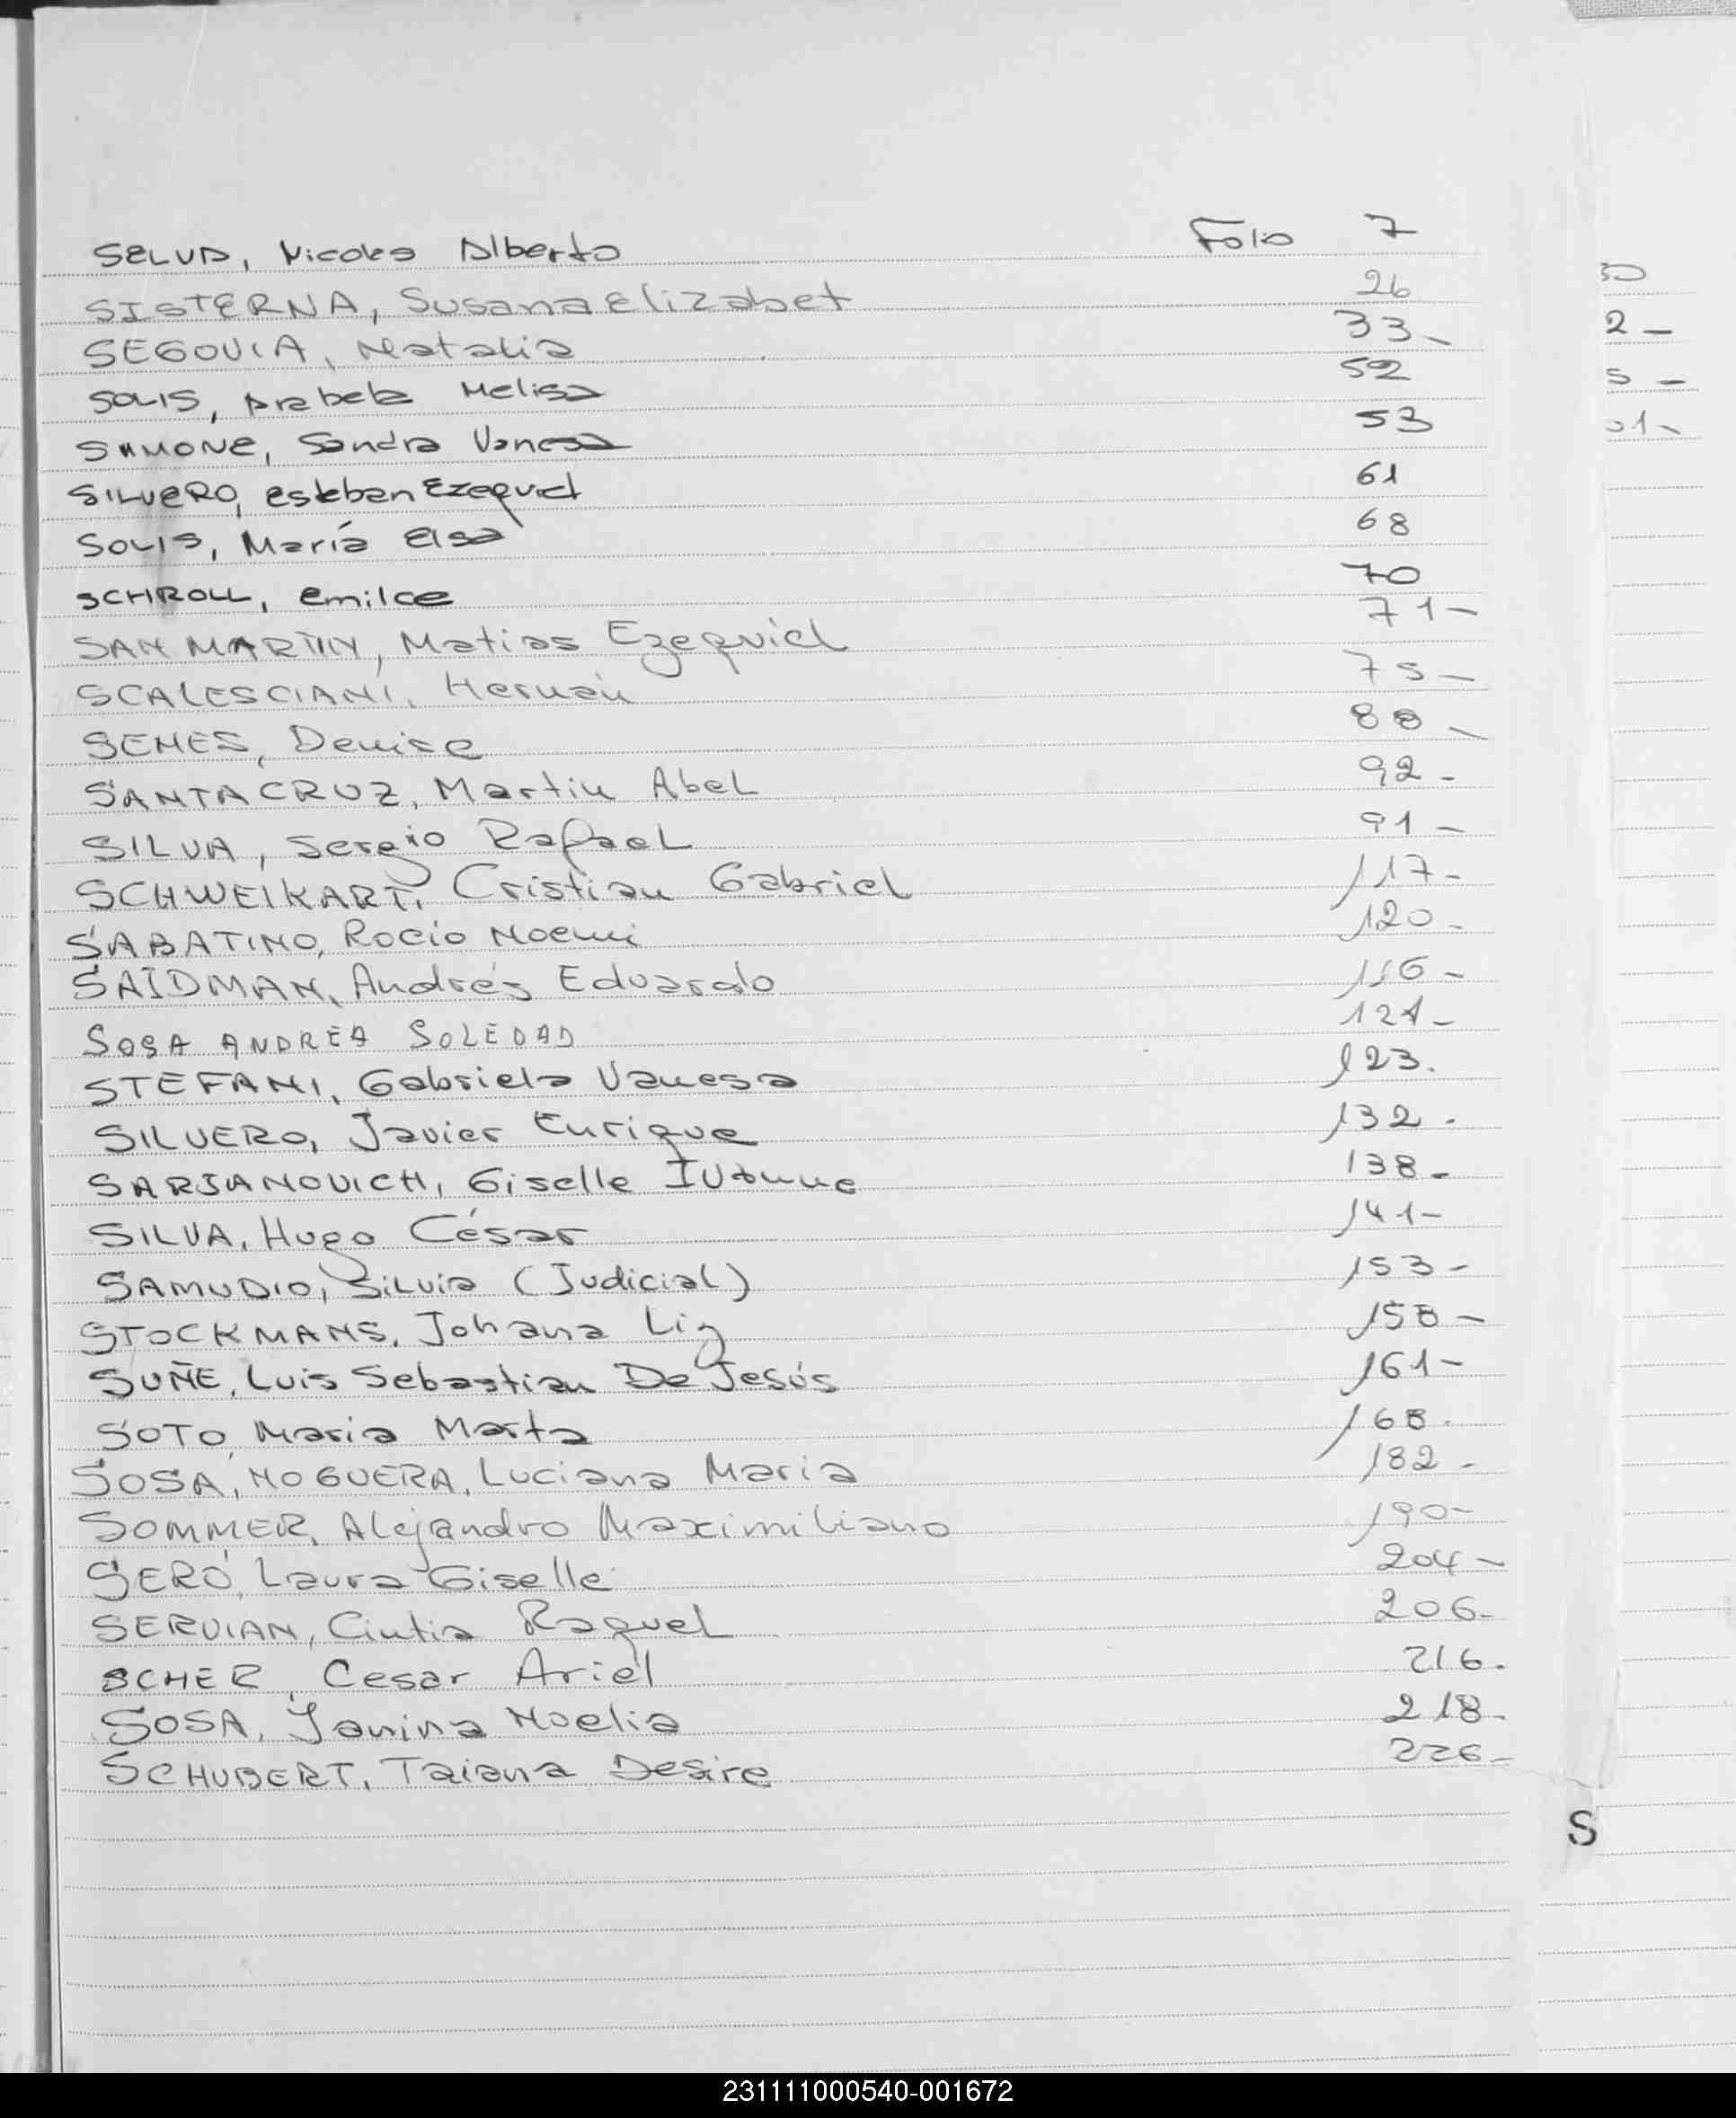 SELUD, Nicolas Alberto Folio 7
SISTERNA, Susana Elizabet 26
SEGOVIA, Natalia 33-
SOLIS, Arabela Melisa 52
SIMONE, Sandra Vanesa 53
SILVERO, Esteban Ezequiel 61
SOLIS, María Elsa 68
SCHROLL, Emilce 70
SAN MARTIN, Matias Ezequiel 71-
SCALESCIANI, Hernán 75-
SEMES, Denise 88-
SANTACRUZ, Martin Abel 92-
SILVA, Sergio Rafael 91-
SCHWEIKART, Cristian Gabriel 117-
SABATINO, Rocío Noemi 120-
SAIDMAN, Andrés Eduardo 116-
SOSA ANDREA SOLEDAD 121-
STEFANI, Gabriela Vanesa 123.
SILVERO, Javier Enrique 132.
SARJANOVICH, Giselle Ivonne 138-
SILVA, Hugo César 141-
SAMUDIO, Silvia (Judicial) 153-
STOCKMANS, Johana Liz 158-
SUÑE, Luis Sebastian De Jesús 161-
SOTO, Maria Marta 168.
SOSA, NOGUERA, Luciana Maria 182-
SOMMER, Alejandro Maximiliano 190-
SERÓ, Laura Giselle 204-
SERVIAN, Cintia Raquel 206-
SCHER, Cesar Ariel 216.
SOSA, Yanina Noelia 218-
SCHUBERT, Taiana Desire 226-
2-
5-
S
231111000540-001672